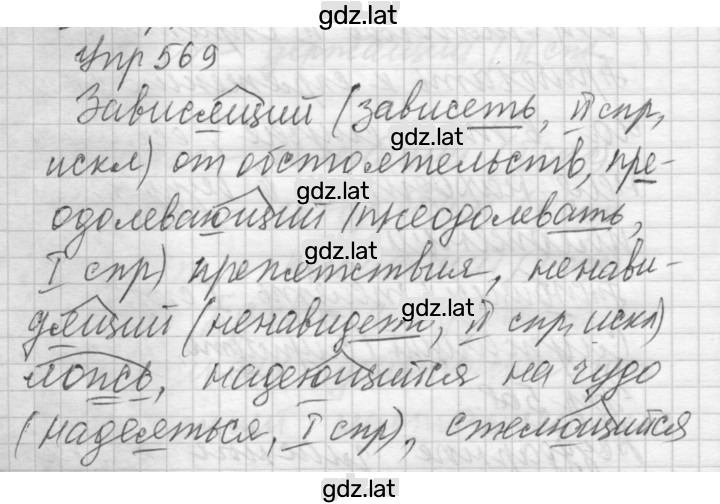 gdz.lat
Упр 569
Зависящий (зависеть, II спр,
gdz.lat
искл) от обстоятельств, пре-
gdz.lat
одолевающий (преодолевать,
gdz.lat
I спр) препятствия, ненави-
gdz.lat
дящий (ненавидеть, II спр, искл)
лопсь, надеющийся на чудо
(надеяться, I спр), стелющийся
gdz.lat